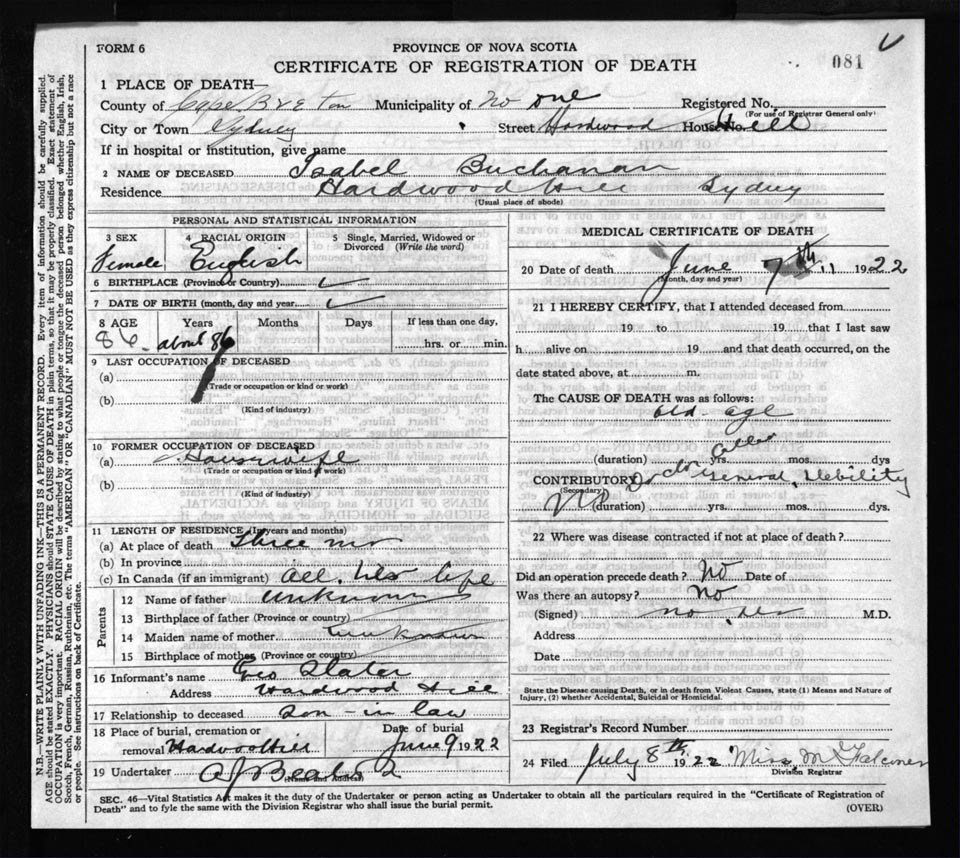 FORM 6
PROVINCE OF NOVA SCOTIA
CERTIFICATE OF REGISTRATION OF DEATH
081
1 PLACE OF DEATH—
County of Cape Breton Municipality of No one Registered No.
(For use of Registrar General only)
City or Town Sydney Street Hardwood Hill House No.
If in hospital or institution, give name
2 NAME OF DECEASED Isabel Buchanan
Residence Hardwood Hill Sydney
(Usual place of abode)
PERSONAL AND STATISTICAL INFORMATION
3 SEX 4 RACIAL ORIGIN 5 Single, Married, Widowed or Divorced (Write the word)
Female English
6 BIRTHPLACE (Province or Country)
7 DATE OF BIRTH (month, day and year)
8 AGE Years Months Days If less than one day,
86. about 86 hrs. or min.
9 LAST OCCUPATION OF DECEASED
(a)
(Trade or occupation or kind or work)
(b)
(Kind of industry)
10 FORMER OCCUPATION OF DECEASED
(a) Housewife
(Trade or occupation or kind or work)
(b)
(Kind of industry)
11 LENGTH OF RESIDENCE (In years and months)
(a) At place of death three mo
(b) In province
(c) In Canada (if an immigrant) all her life
Parents
12 Name of father unknown
13 Birthplace of father (Province or country)
14 Maiden name of mother unknown
15 Birthplace of mother (Province or country)
16 Informant's name Geo Slater
Address Hardwood Hill
17 Relationship to deceased Son-in law
18 Place of burial, cremation or removal Hardwood Hill
Date of burial June 9 1922
19 Undertaker A J Beaton
(Name and Address)
MEDICAL CERTIFICATE OF DEATH
20 Date of death June 7th 1922
(Month, day and year)
21 I HEREBY CERTIFY, that I attended deceased from
19 to 19 that I last saw
h alive on 19 and that death occurred, on the
date stated above, at m.
The CAUSE OF DEATH was as follows:
old age
(duration) yrs. mos. dys
CONTRIBUTORY General Debility
(Secondary)
(duration) yrs. mos. dys
22 Where was disease contracted if not at place of death?
Did an operation precede death? No Date of
Was there an autopsy? No
(Signed) no M.D.
Address
Date
State the Disease causing Death, or in death from Violent Causes, state (1) Means and Nature of Injury, (2) whether Accidental, Suicidal or Homicidal.
23 Registrar's Record Number
24 Filed July 8th 1922 Miss M Falconer
Division Registrar
SEC. 46—Vital Statistics Act makes it the duty of the Undertaker or person acting as Undertaker to obtain all the particulars required in the "Certificate of Registration of
Death" and to fyle the same with the Division Registrar who shall issue the burial permit.
(OVER)
N.B.—WRITE PLAINLY WITH UNFADING INK—THIS IS A PERMANENT RECORD. Every item of information should be carefully supplied.
AGE should be stated EXACTLY. PHYSICIANS should STATE CAUSE OF DEATH in plain terms, so that it may be properly classified. Exact statement of
OCCUPATION is very important. RACIAL ORIGIN will be described by stating to what people or tongue the deceased person belonged whether English, Irish,
Scotch, French, German, Russian, Ruthenian, etc. The terms "AMERICAN" OR "CANADIAN" MUST NOT BE USED as they express citizenship but not a race
or people. See instructions on back of Certificate.